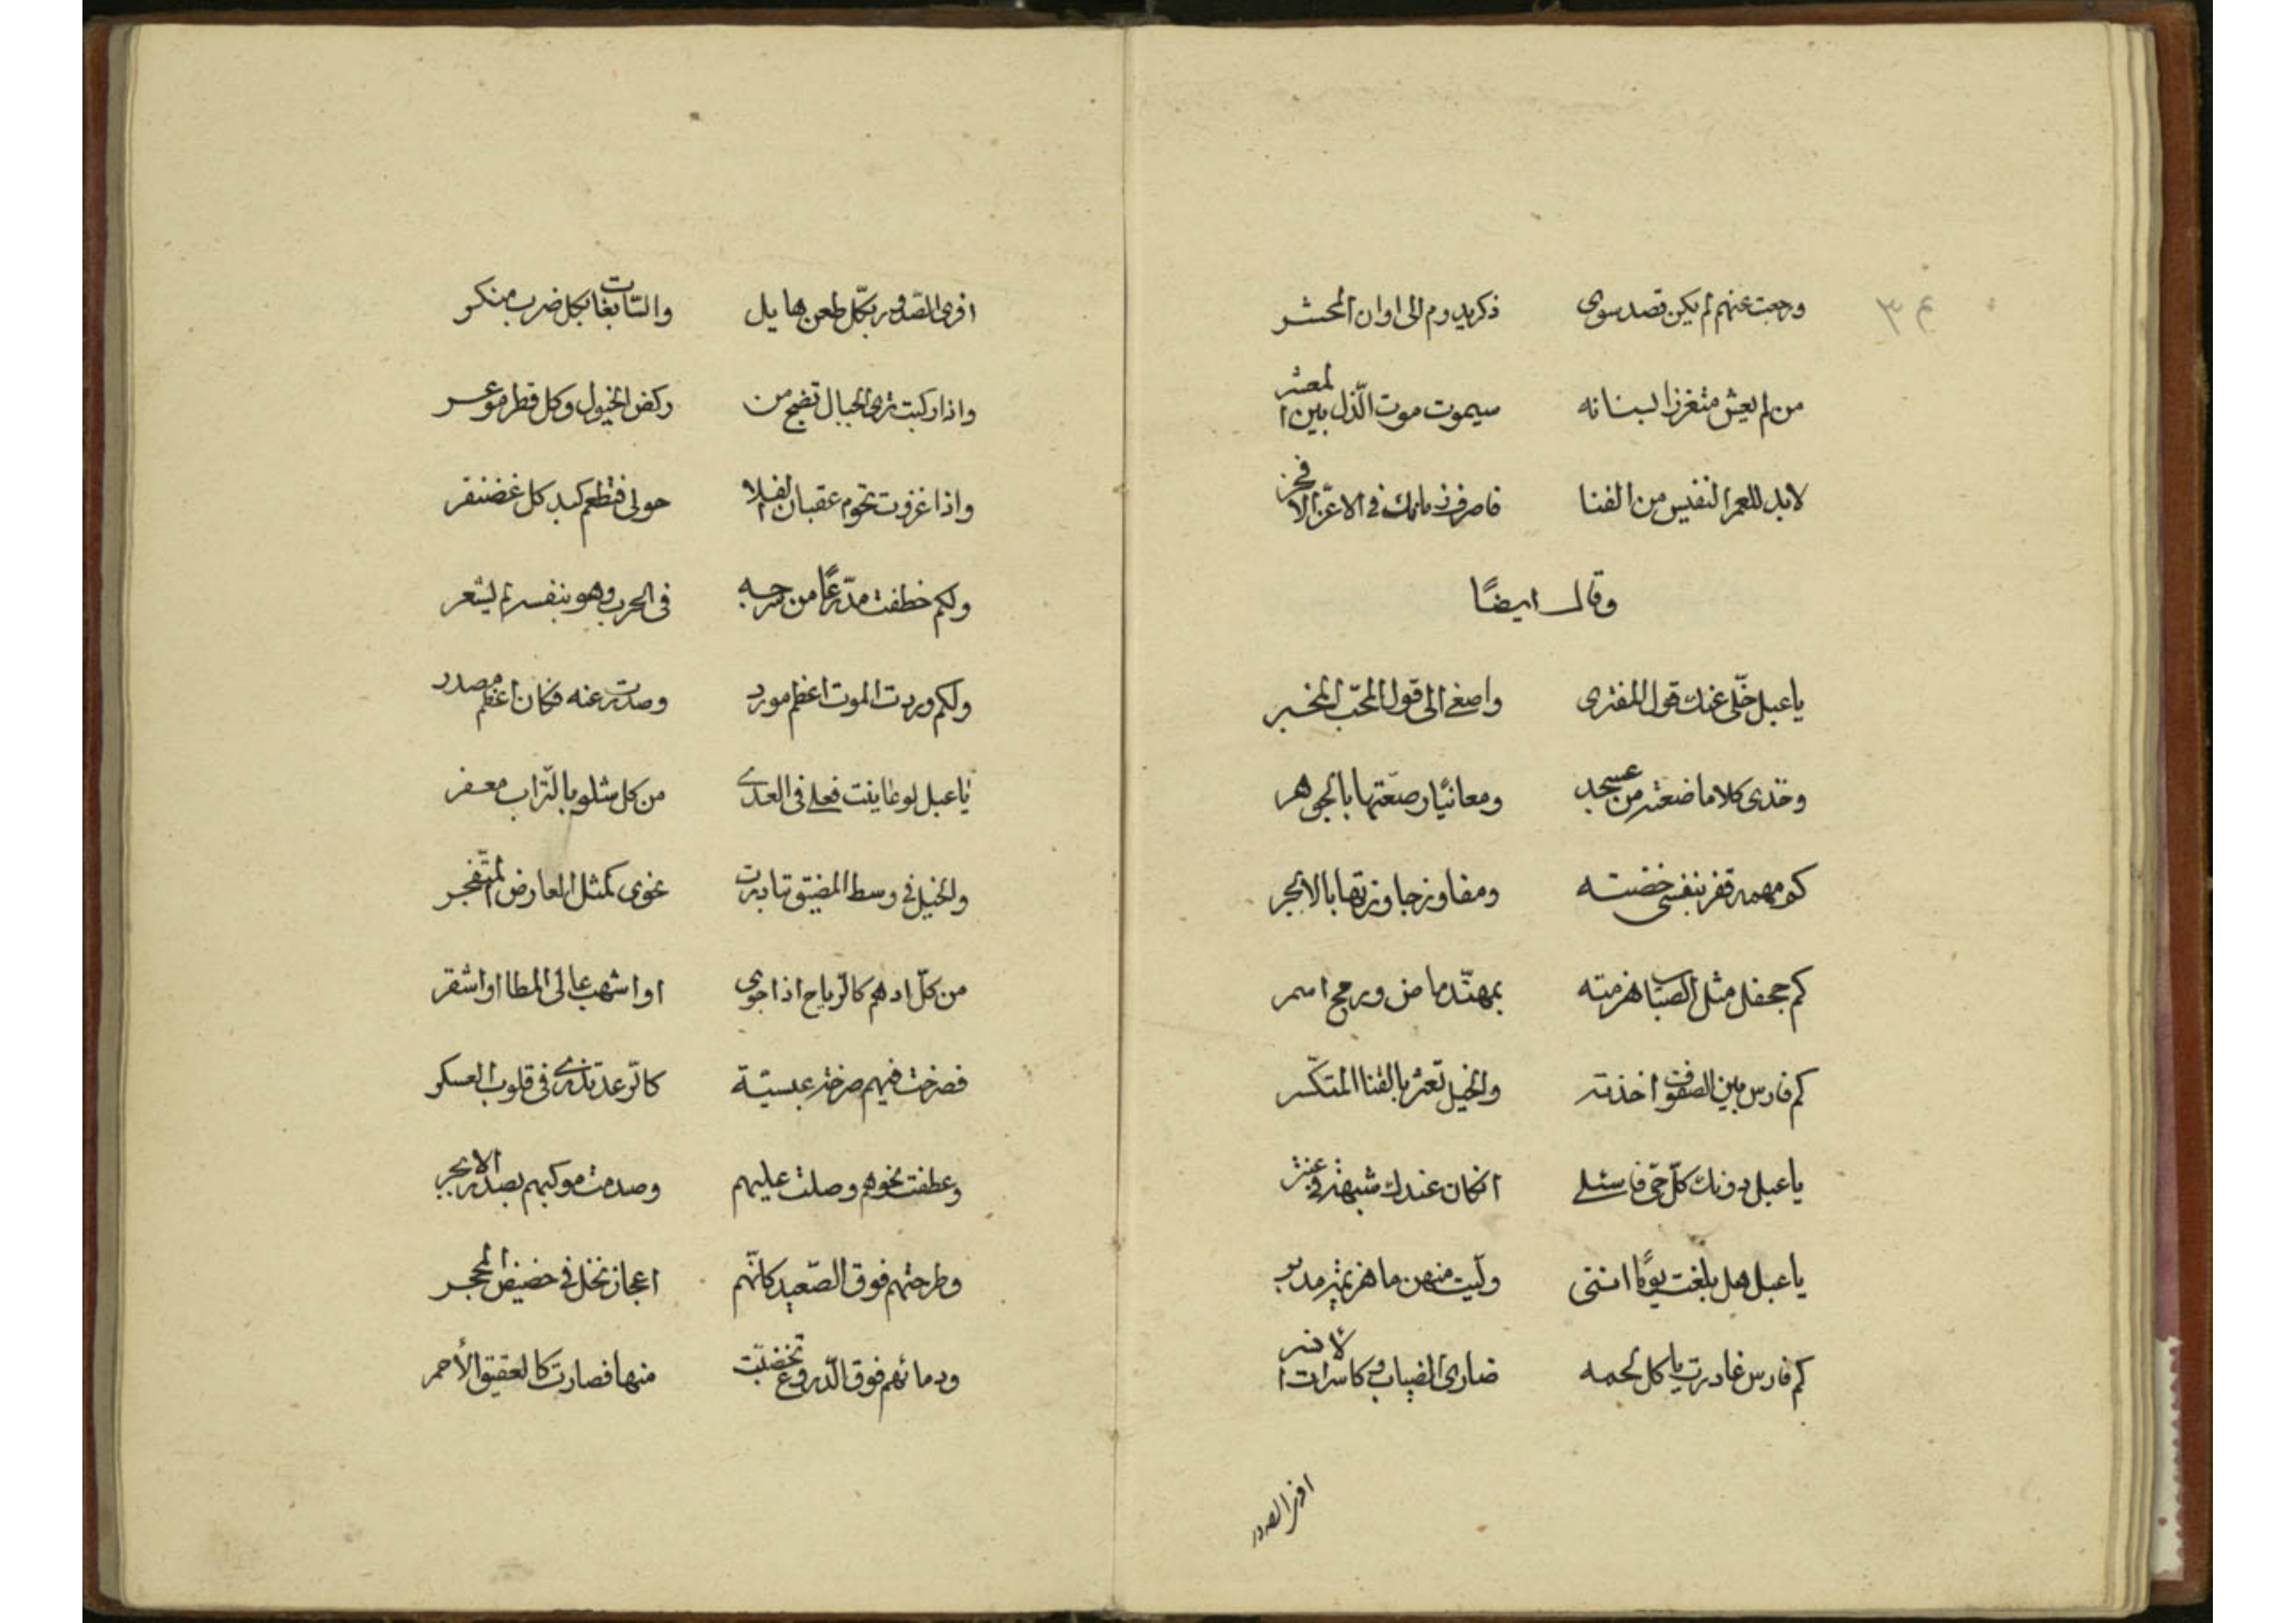 ٣٤
ورجعت عنهم لم يكن قصدى سوى ذكر يدوم الى اوان المحشر
من لم يعش متعززا بسنانه سيموت موت الذل بين المعشر
لابد للعمر النفيس من الفنا فاصرف زمانك فى الاعز الافخر
وقال ايضًا
ياعبل خلّى عنك قول المفترى واصغى الى قول المحبّ المخبر
وخذى كلاما صغته من عسجد ومعانيًا رصّعتها بالجوهر
كم مهمه قفر بنفسى خضته ومفاوز جاوزتها بالابجر
كم جحفل مثل الضباب هزمته بمهنّد ماض ورمح اسمر
كم فارس بين الصفوف اخذته والخيل تعثر بالقنا المتكسّر
ياعبل دونك كلّ حىّ فاسئلى ان كان عندك شبهة فى عنتر
ياعبل هل بلغت يومًا اننى ولّيت منهزما هزيمة مدبر
كم فارس غادرت ياكل لحمه ضارى الذياب وكاسرات الانسر
افرى الصدور
افرى الصّدور بكّل طعن هايل والسّابغات بكل ضرب منكر
واذا ركبت ترى الجبال تضج من ركض الخيول وكل قطر موعر
واذا غزوت تحوم عقبان الفلا حولى فتطعم كبد كل غضنفر
ولكم خطفت مدّرعًا من سرجه فى الحرب وهو بنفسه لم يشعر
ولكم وردت الموت اعظم مورد وصدرت عنه فكان اعظم مصدر
ياعبل لو عاينت فعلى فى العدى من كل شلو بالتّراب معفر
والخيل فى وسط المضيق تبادرت نحوى كمثل العارض المتفجر
من كلّ ادهم كالرّياح اذا جرى او اشهب عالى المطا او اشقر
فصرخت فيهم صرخة عبسيّة كالرّعد تدوى فى قلوب العسكر
وعطفت نحوهم وصلت عليهم وصدمت موكبهم بصدر الابجر
وطرحتهم فوق الصّعيد كانّهم اعجاز نخل فى حضيض المحجر
ودمائهم فوق الدّروع تخضّبت منها فصارت كالعقيق الأحمر